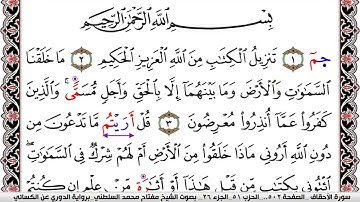 بِسْمِ ٱللَّهِ ٱلرَّحْمَٰنِ ٱلرَّحِيمِ
حمٓ ١ تَنزِيلُ ٱلْكِتَٰبِ مِنَ ٱللَّهِ ٱلْعَزِيزِ ٱلْحَكِيمِ ٢ مَا خَلَقْنَا
ٱلسَّمَٰوَٰتِ وَٱلْأَرْضَ وَمَا بَيْنَهُمَا إِلَّا بِٱلْحَقِّ وَأَجَلٍ مُّسَمًّىۚ وَٱلَّذِينَ
كَفَرُوا۟ عَمَّآ أُنذِرُوا۟ مُعْرِضُونَ ٣ قُلْ أَرَيْتُم مَّا تَدْعُونَ مِن
دُونِ ٱللَّهِ أَرُونِى مَاذَا خَلَقُوا۟ مِنَ ٱلْأَرْضِ أَمْ لَهُمْ شِرْكٌ فِى ٱلسَّمَٰوَٰتِۖ
ٱئْتُونِى بِكِتَٰبٍ مِّن قَبْلِ هَٰذَآ أَوْ أَثَٰرَةٍ مِّنْ عِلْمٍ إِن كُنتُمْ
سورة الأحقاف الصفحة ٥٠٢ الحزب ٥١ الجزء ٢٦ بصوت الشيخ مفتاح محمد السلطني برواية الدوري عن الكسائي